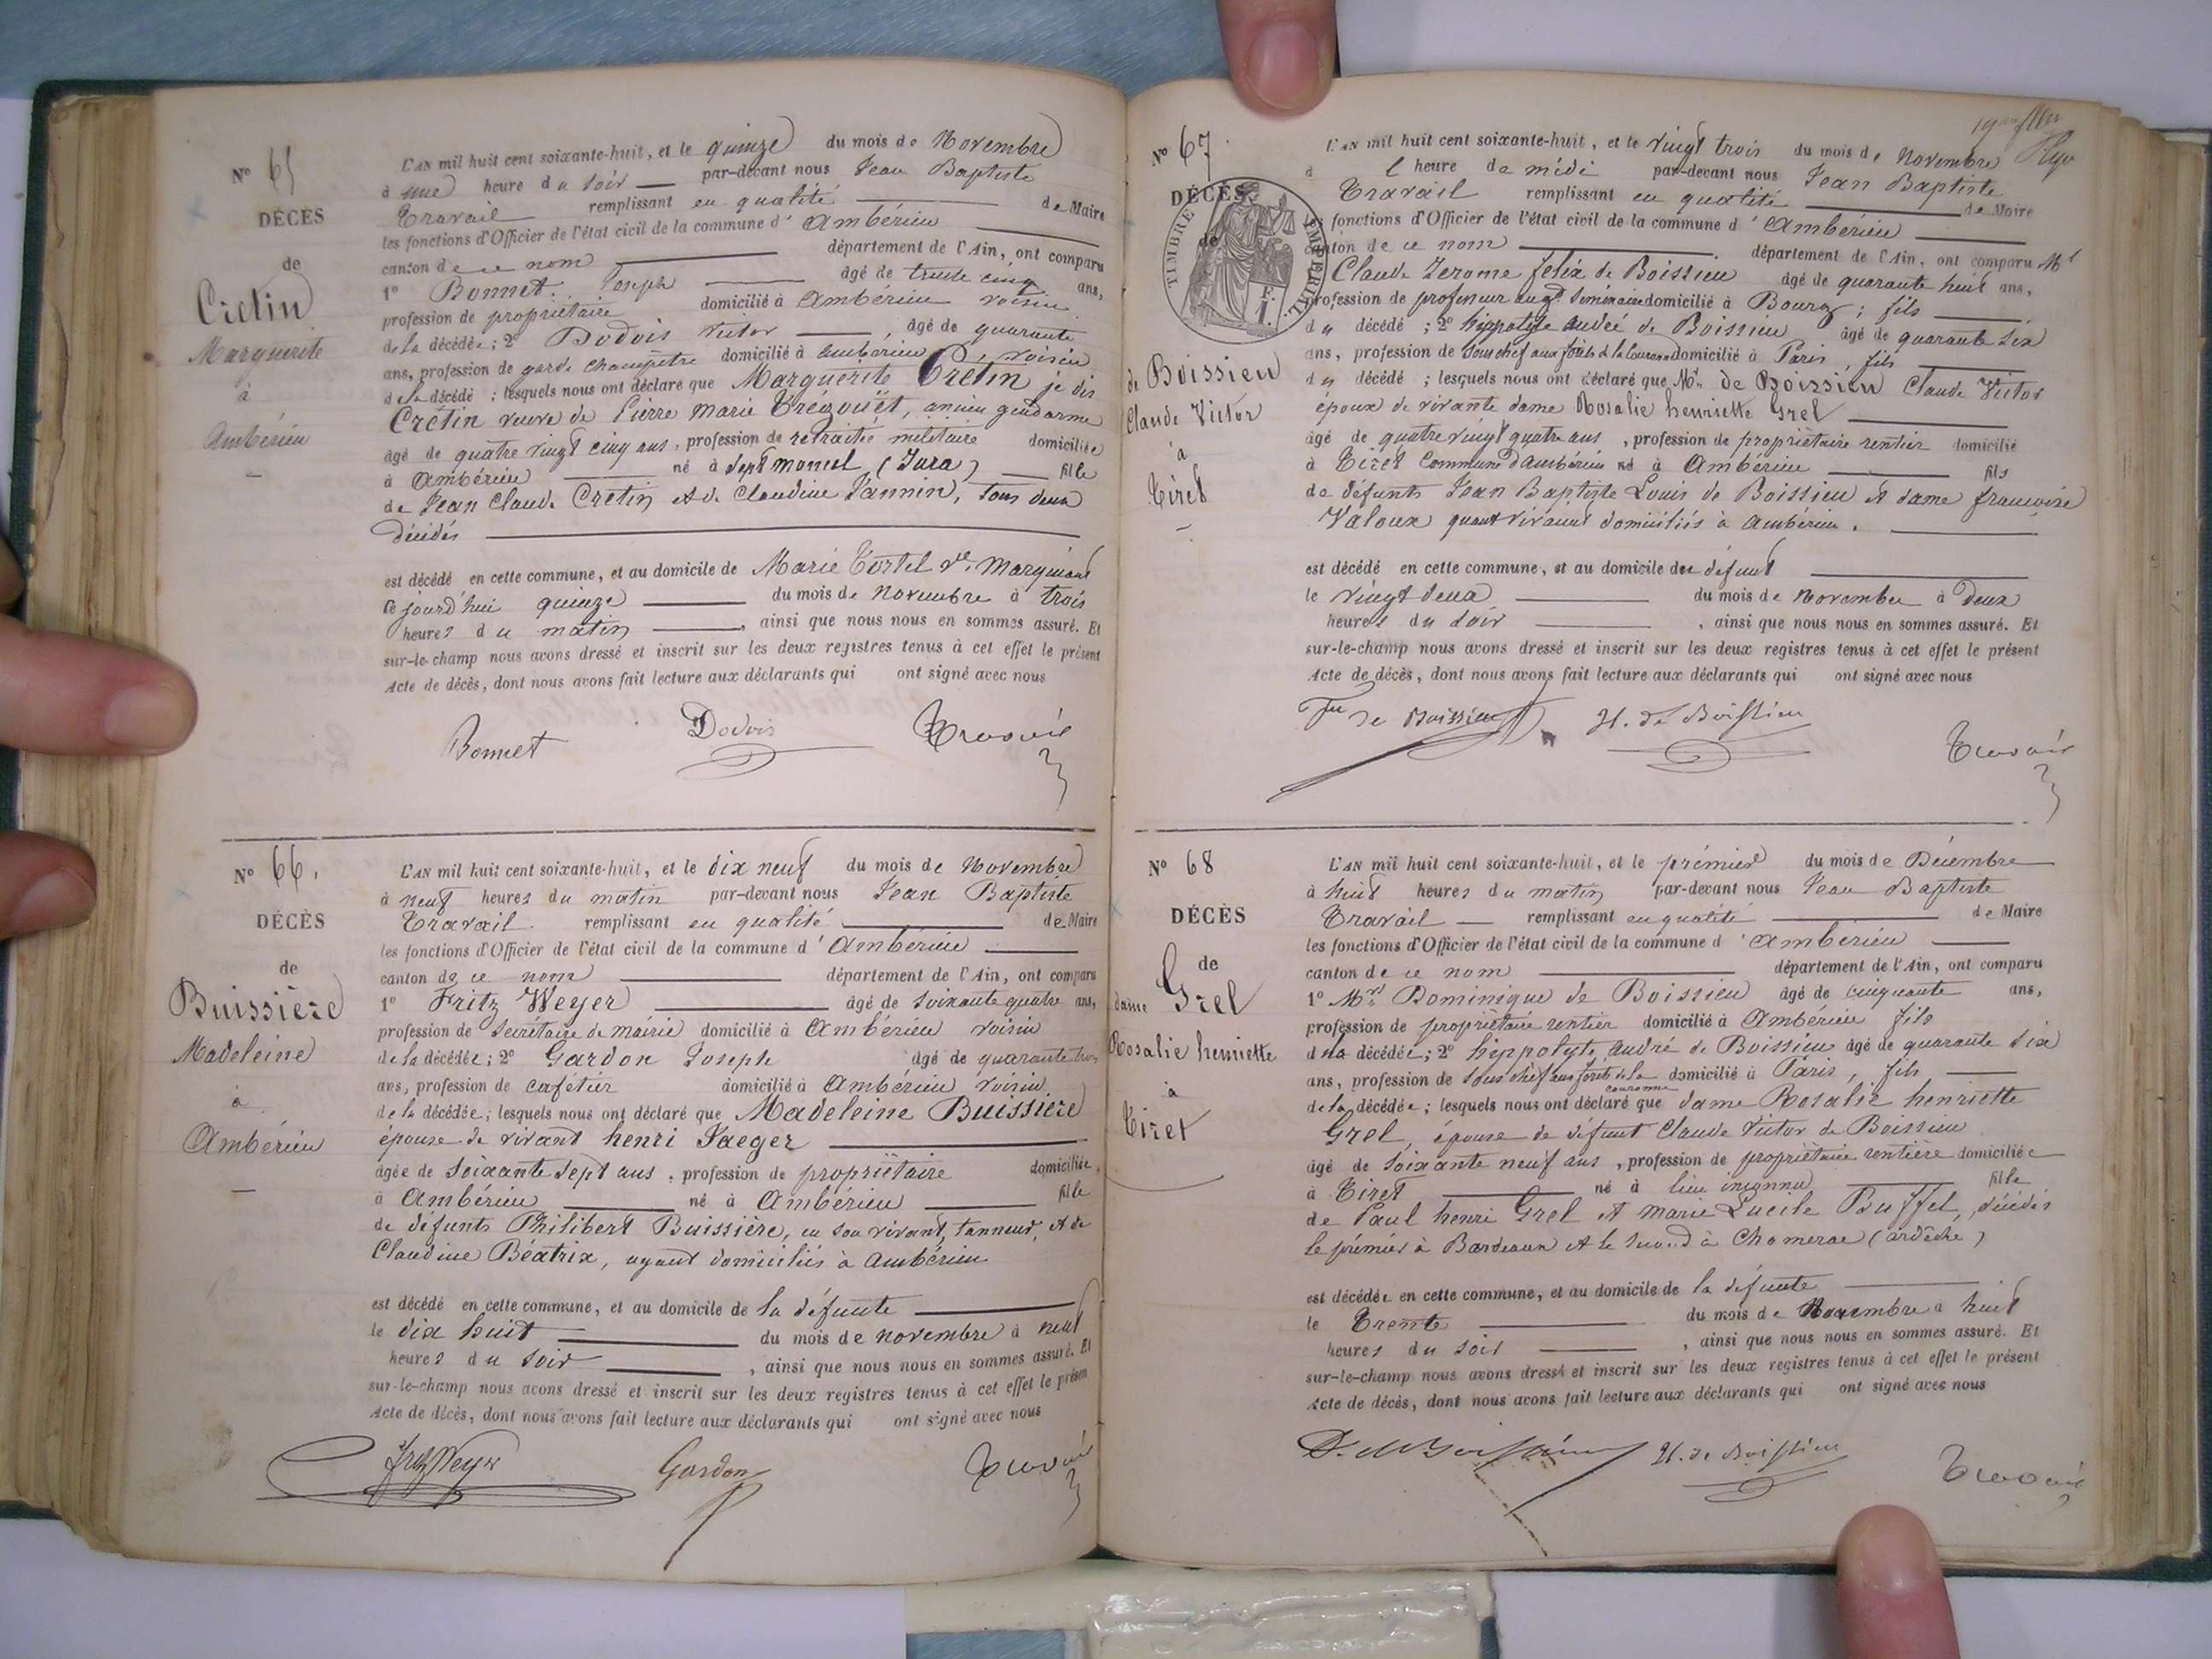 N° 65
DÉCÈS
de
Cretin
Marguerite
à
Ambérieu
L'AN mil huit cent soixante-huit, et le quinze du mois de Novembre
à une heure du soir par-devant nous Jean Baptiste
Travail remplissant en qualité de Maire
les fonctions d'Officier de l'état civil de la commune d' Ambérieu
canton de ce nom département de l'Ain, ont comparu
1° Bonnet Joseph âgé de trente cinq ans,
profession de propriétaire domicilié à Ambérieu voisin
de la décédée; 2° Dodois Victor, âgé de quarante
ans, profession de garde champêtre domicilié à Ambérieu, voisin
de la décédé; lesquels nous ont déclaré que Marguerite Crétin je dis
Crétin veuve de Pierre Marie Trégouët, ancien gendarme
âgé de quatre vingt cinq ans, profession de retraitée militaire domiciliée
à Ambérieu né à Septmoncel (Jura) fille
de Jean Claude Cretin et de Claudine Vannin, tous deux
décédés
est décédé en cette commune, et au domicile de Marie Tortel
ce jourd'hui quinze du mois de Novembre à trois
heures du matin, ainsi que nous nous en sommes assuré. Et
sur-le-champ nous avons dressé et inscrit sur les deux registres tenus à cet effet le présent
Acte de décès, dont nous avons fait lecture aux déclarants qui ont signé avec nous
Bonnet Dodois Travail
N° 66.
DÉCÈS
de
Buissière
Madeleine
à
Ambérieu
L'AN mil huit cent soixante-huit, et le dix neuf du mois de Novembre
à neuf heures du matin par-devant nous Jean Baptiste
Travail remplissant en qualité de Maire
les fonctions d'Officier de l'état civil de la commune d' Ambérieu
canton de ce nom département de l'Ain, ont comparu
1° Fritz Weyer âgé de soixante quatre ans,
profession de Secrétaire de mairie domicilié à Ambérieu voisin
de la décédée; 2° Gardon Joseph âgé de quarante trois
ans, profession de cafétier domicilié à Ambérieu voisin
de la décédée; lesquels nous ont déclaré que Madeleine Buissiere
épouse de vivant henri Jaeger
âgée de soixante sept ans, profession de propriétaire domiciliée
à Ambérieu né à Ambérieu fille
de défunts Philibert Buissière, en son vivant, tanneur, et de
Claudine Béatrix, ayant domiciliés à Ambérieu
est décédé en cette commune, et au domicile de la défunte
le dix huit du mois de novembre à neuf
heures du soir, ainsi que nous nous en sommes assuré. Et
sur-le-champ nous avons dressé et inscrit sur les deux registres tenus à cet effet le présent
Acte de décès, dont nous avons fait lecture aux déclarants qui ont signé avec nous
Fritz Weyer Gardon Travail
N° 67.
DÉCÈS
de
TIMBRE IMPÉRIAL
1 F.
de Boissieu
Claude Victor
à
Tiret
L'AN mil huit cent soixante-huit, et le vingt trois du mois de Novembre
à l heure de midi par-devant nous Jean Baptiste
Travail remplissant en qualité de Maire
les fonctions d'Officier de l'état civil de la commune d' Ambérieu
canton de ce nom département de l'Ain, ont comparu Mr
Claude Jerome felix de Boissieu âgé de quarante huit ans,
profession de professeur au gd Séminaire domicilié à Bourg; fils
du décédé; 2° hippolyte andré de Boissieu âgé de quarante six
ans, profession de Sous chef aux forêts de la Couronne domicilié à Paris, fils
du décédé; lesquels nous ont déclaré que Mr de Boissieu Claude Victor
époux de vivante dame Rosalie henriette Grel
âgé de quatre vingt quatre ans, profession de propriétaire rentier domicilié
à Tiret Commune d'ambérieu né à Ambérieu fils
de défunts Jean Baptiste Louis de Boissieu et dame françoise
Valoux quant vivaient domiciliés à Ambérieu.
est décédé en cette commune, et au domicile du défunt
le vingt deux du mois de novembre à deux
heures du soir, ainsi que nous nous en sommes assuré. Et
sur-le-champ nous avons dressé et inscrit sur les deux registres tenus à cet effet le présent
Acte de décès, dont nous avons fait lecture aux déclarants qui ont signé avec nous
de Boissieu H. de Boissieu
Travail
N° 68
DÉCÈS
de
dame Grel
Rosalie henriette
à
Tiret
L'AN mil huit cent soixante-huit, et le prémier du mois de Décembre
à huit heures du matin par-devant nous Jean Baptiste
Travail remplissant en qualité de Maire
les fonctions d'Officier de l'état civil de la commune d' Ambérieu
canton de ce nom département de l'Ain, ont comparu
1° Mr Dominique de Boissieu âgé de cinquante ans,
profession de propriétaire rentier domicilié à Ambérieu fils
de la décédée; 2° hippolyte André de Boissieu âgé de quarante six
ans, profession de sous chef aux forêts de la couronne domicilié à Paris, fils
de la décédée; lesquels nous ont déclaré que dame Rosalie henriette
Grel, épouse de défunt Claude Victor de Boissieu
âgé de soixante neuf ans, profession de propriétaire rentière domiciliée
à Tiret né à lieu inconnu fille
de Paul henri Grel et Marie Lucile Buffel, décédés
le prémier à Bordeaux et le second à Chomerac (ardèche)
est décédée en cette commune, et au domicile de la défunte
le Trente du mois de Novembre à huit
heures du soir, ainsi que nous nous en sommes assuré. Et
sur-le-champ nous avons dressé et inscrit sur les deux registres tenus à cet effet le présent
Acte de décès, dont nous avons fait lecture aux déclarants qui ont signé avec nous
D. de Boissieu H. de Boissieu
Travail